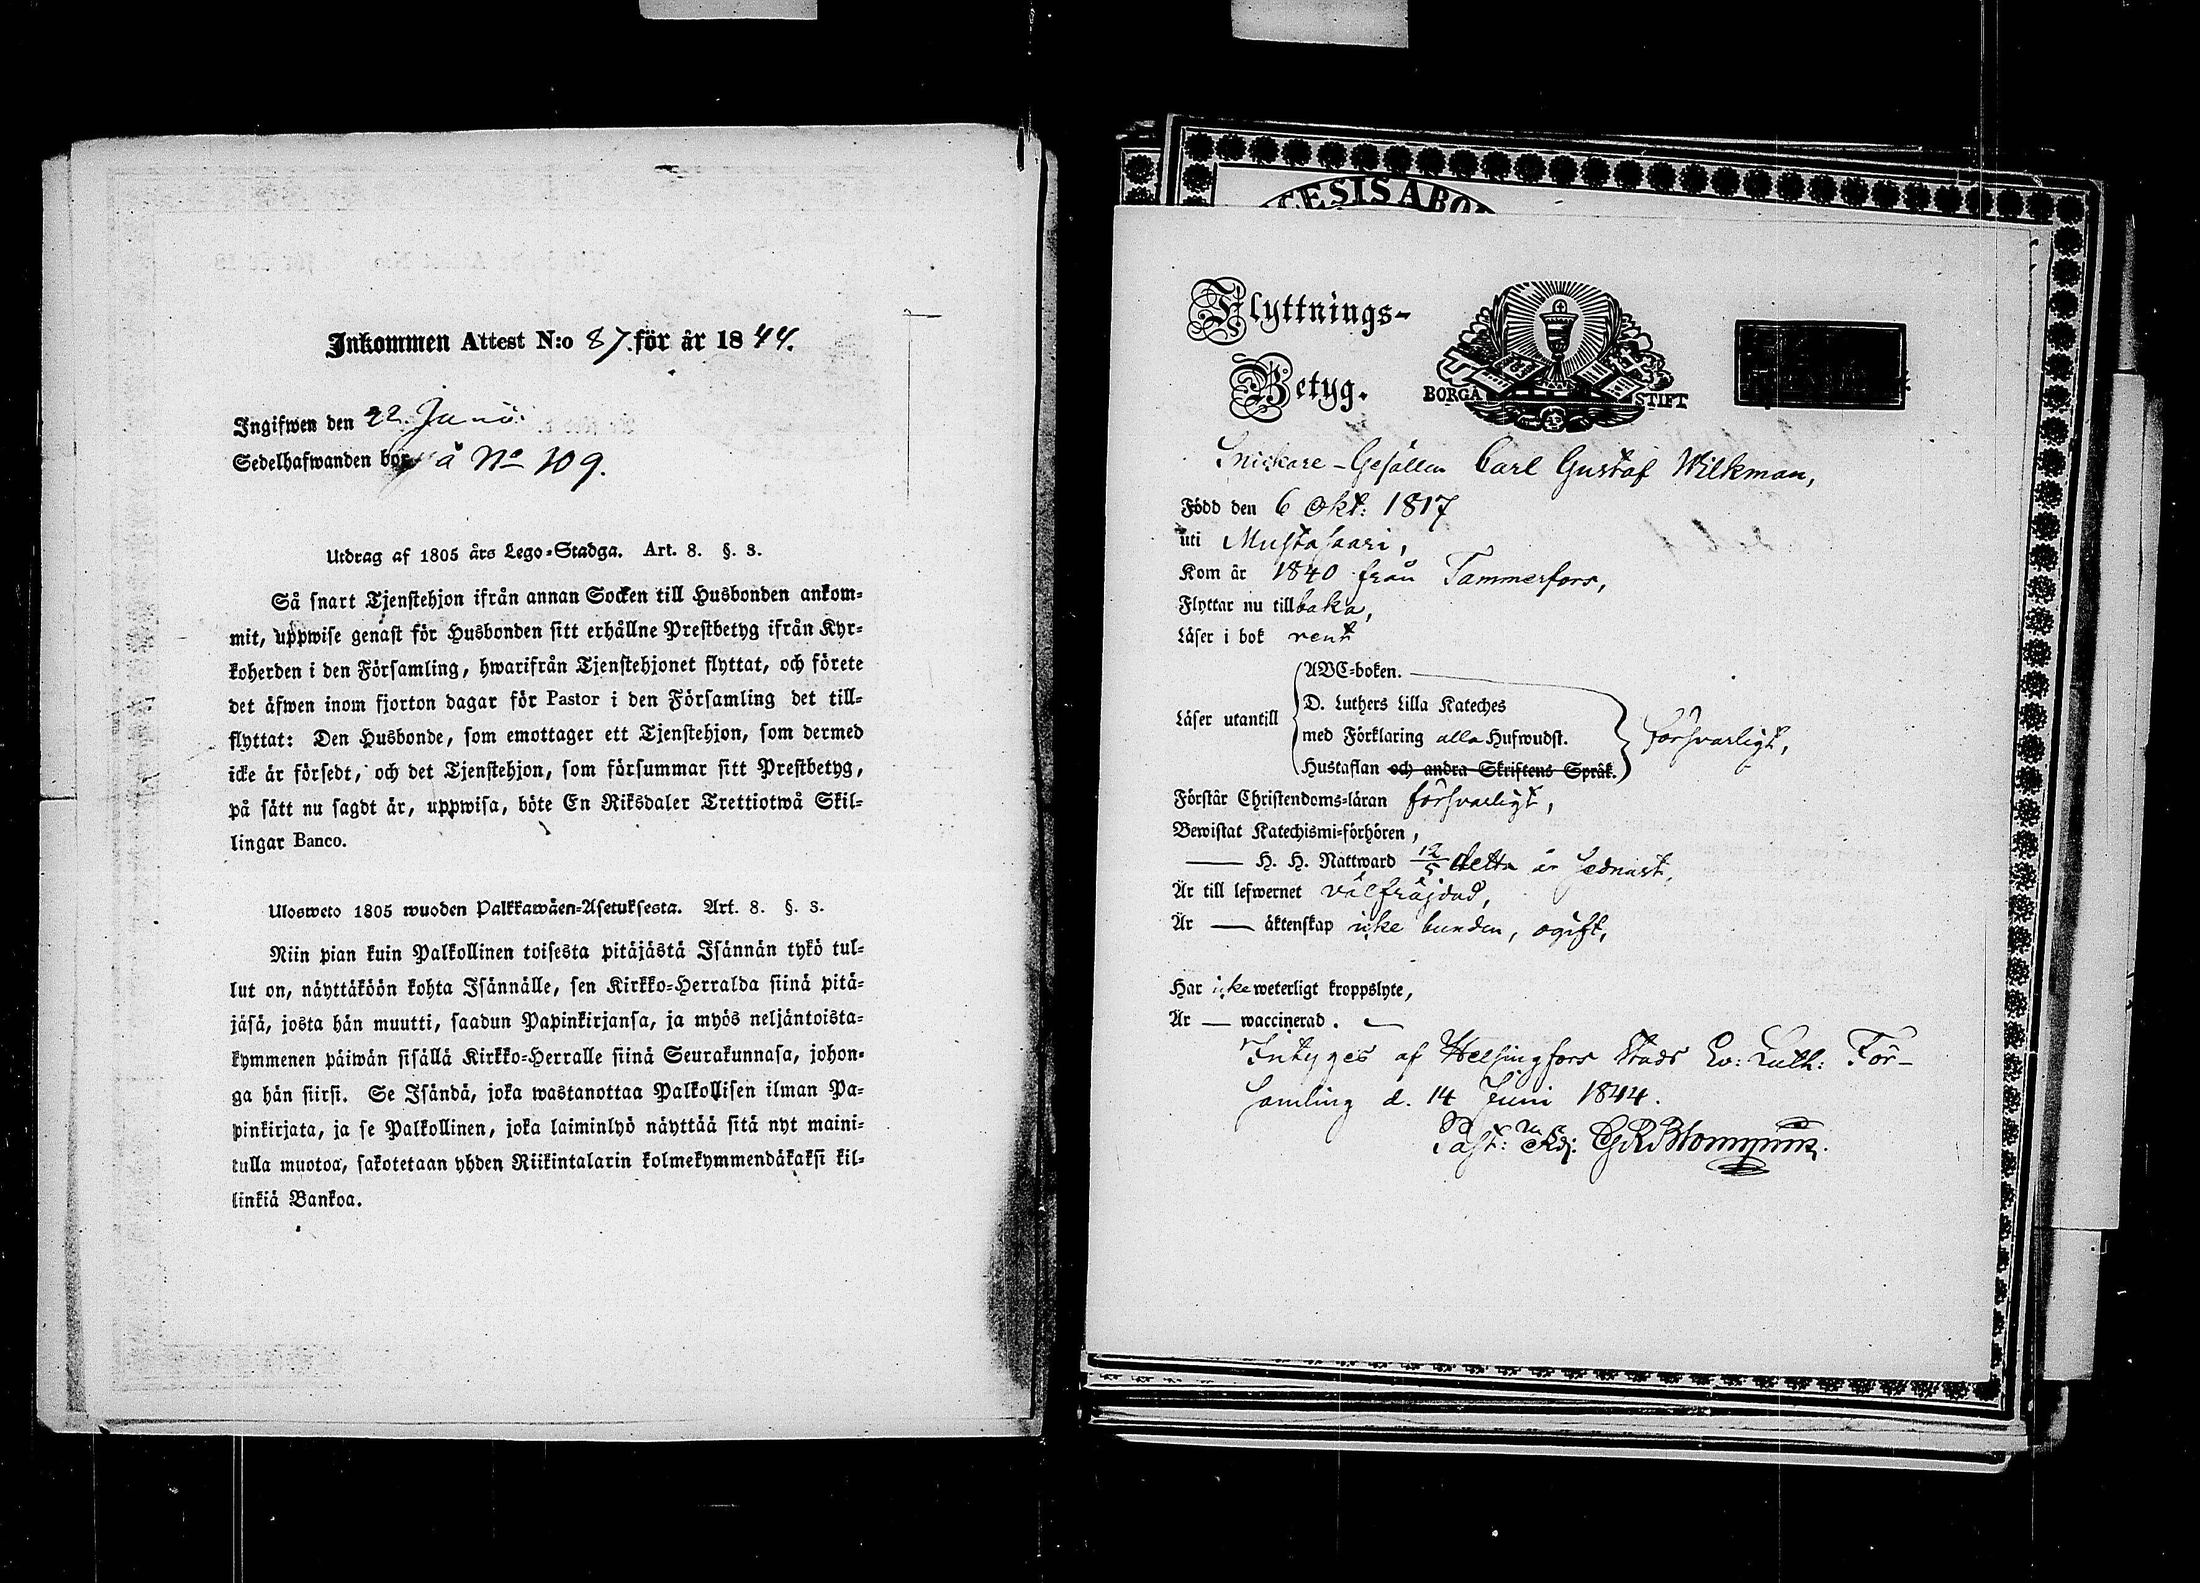 Inkommen Attest N:o 87. för år 1844.
Ingifwen den 22 Junii.
Sedelhafwanden bor å No 109.
Utdrag af 1805 års Lego-Stadga. Art. 8. §. 3.
Så snart Tjenstehjon ifrån annan Socken till Husbonden ankom-
mit, uppwise genast för Husbonden sitt erhållne Prestbetyg ifrån Kyr-
koherden i den Församling, hwarifrån Tjenstehjonet flyttat, och förete
det äfwen inom fjorton dagar för Pastor i den Församling det till-
flyttat: Den Husbonde, som emottager ett Tjenstehjon, som dermed
icke är försedt, och det Tjenstehjon, som försummar sitt Prestbetyg,
på sätt nu sagdt är, uppwisa, böte En Riksdaler Trettiotwå Skil-
lingar Banco.
Ulosweto 1805 wuoden Palkkawäen-Asetuksesta. Art. 8. §. 3.
Niin pian kuin Palkollinen toisesta pitäjästä Isännän tykö tul-
lut on, näyttäköön kohta Isännälle, sen Kirkko-Herralda siinä pitä-
jäsä, josta hän muutti, saadun Papinkirjansa, ja myös neljäntoista-
kymmenen päiwän sisällä Kirkko-Herralle siinä Seurakunnasa, johon-
ga hän siirsi. Se Isändä, joka wastanottaa Palkollisen ilman Pa-
pinkirjata, ja se Palkollinen, joka laiminlyö näyttää sitä nyt maini-
tulla muotoa, sakotetaan yhden Riikintalarin kolmekymmendäkaksi kil-
linkiä Bankoa.
CESIS ABO
Flyttnings-
Betyg.
BORGÅ STIFT
Snickare-Gesällen Carl Gustaf Wilkman,
Född den 6 Okt: 1817
uti Mustasaari,
Kom år 1840 från Tammerfors,
Flyttar nu tillbaka,
Läser i bok rent
Läser utantill
ABC-boken.
D. Luthers Lilla Kateches
med Förklaring alla Hufwudst.
Hustaflan och andra Skriftens Språk.
försvarligt,
Förstår Christendoms-läran försvarligt,
Bewistat Katechismi-förhören,
H. H. Nattward 12/5 detta år sednast,
Är till lefwernet välfräjdad,
Är — äktenskap icke bunden, ogift,
Har icke weterligt kroppslyte,
Är — waccinerad.
Intyges af Helsingfors Stads Ev: Luth: För-
samling d. 14 Juni 1844.
Past: Adj: